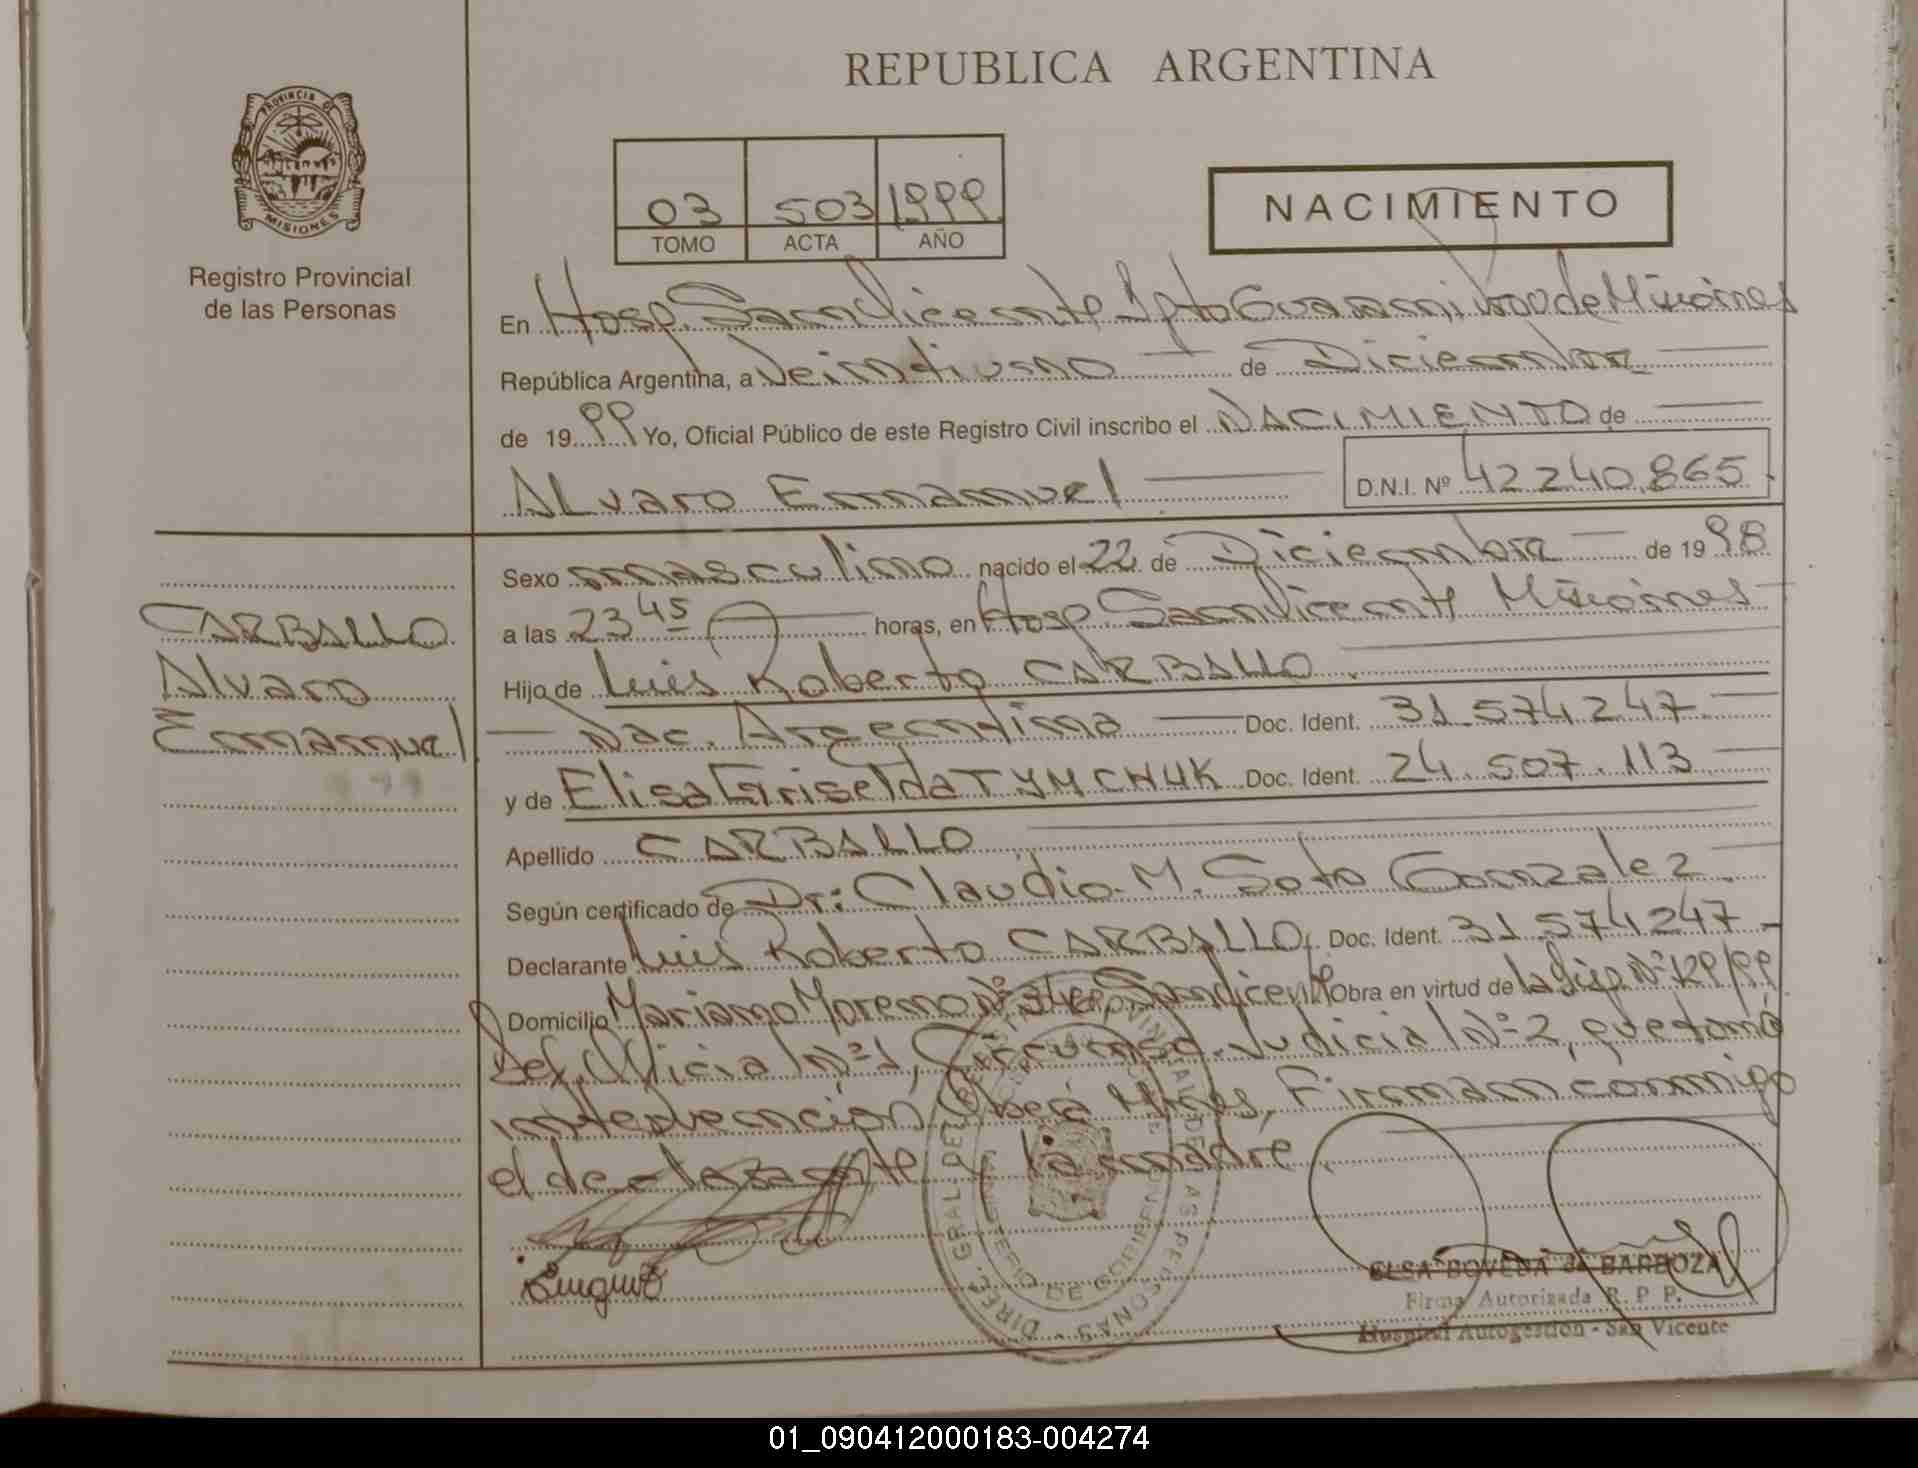 REPUBLICA ARGENTINA
PROVINCIA DE
MISIONES
Registro Provincial
de las Personas
03 503 1999
TOMO ACTA AÑO
NACIMIENTO
En Hosp. San Vicente Dpto Guarani Prov de Misiones
República Argentina, a Veintiuno de Diciembre
de 1999 Yo, Oficial Público de este Registro Civil inscribo el NACIMIENTO de
Alvaro Emmanuel D.N.I. Nº 42240.865
Sexo masculino nacido el 22 de Diciembre de 1998
CARBALLO
Alvaro
Emmanuel
a las 23 45 horas, en Hosp San Vicente Misiones
Hijo de Luis Roberto CARBALLO
Nac. Argentina Doc. Ident. 31.574247
y de Elisa Griselda TYMCHUK Doc. Ident. 24.507.113
Apellido CARBALLO
Según certificado de Dr: Claudio M. Soto Gonzalez
Declarante Luis Roberto CARBALLO, Doc. Ident. 31.574247
Domicilio Mariano Moreno Nº San Vicente Obra en virtud de la Disp Nº 129/99
Def. Oficial Nº 1, Circunsc. Judicial Nº 2, que tomó
intervención, Oberá Mnes, Firman conmigo
el declarante y la madre
ELSA BOVEDA de BARBOZA
Firma Autorizada R. P. P.
Hospital Autogestion - San Vicente
01_090412000183-004274